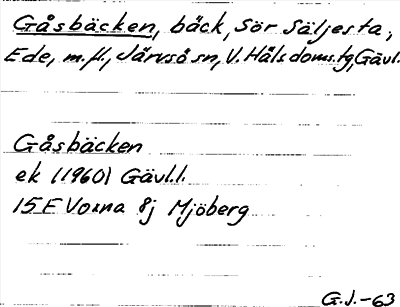 Gåsbäcken, bäck, Sör Säljesta,
Ede, m.fl., Järvsö sn, V. Häls doms.tg, Gävl.
Gåsbäcken
ek (1960) Gävl.l.
15F Voxna 8j Mjöberg
G.J.-63